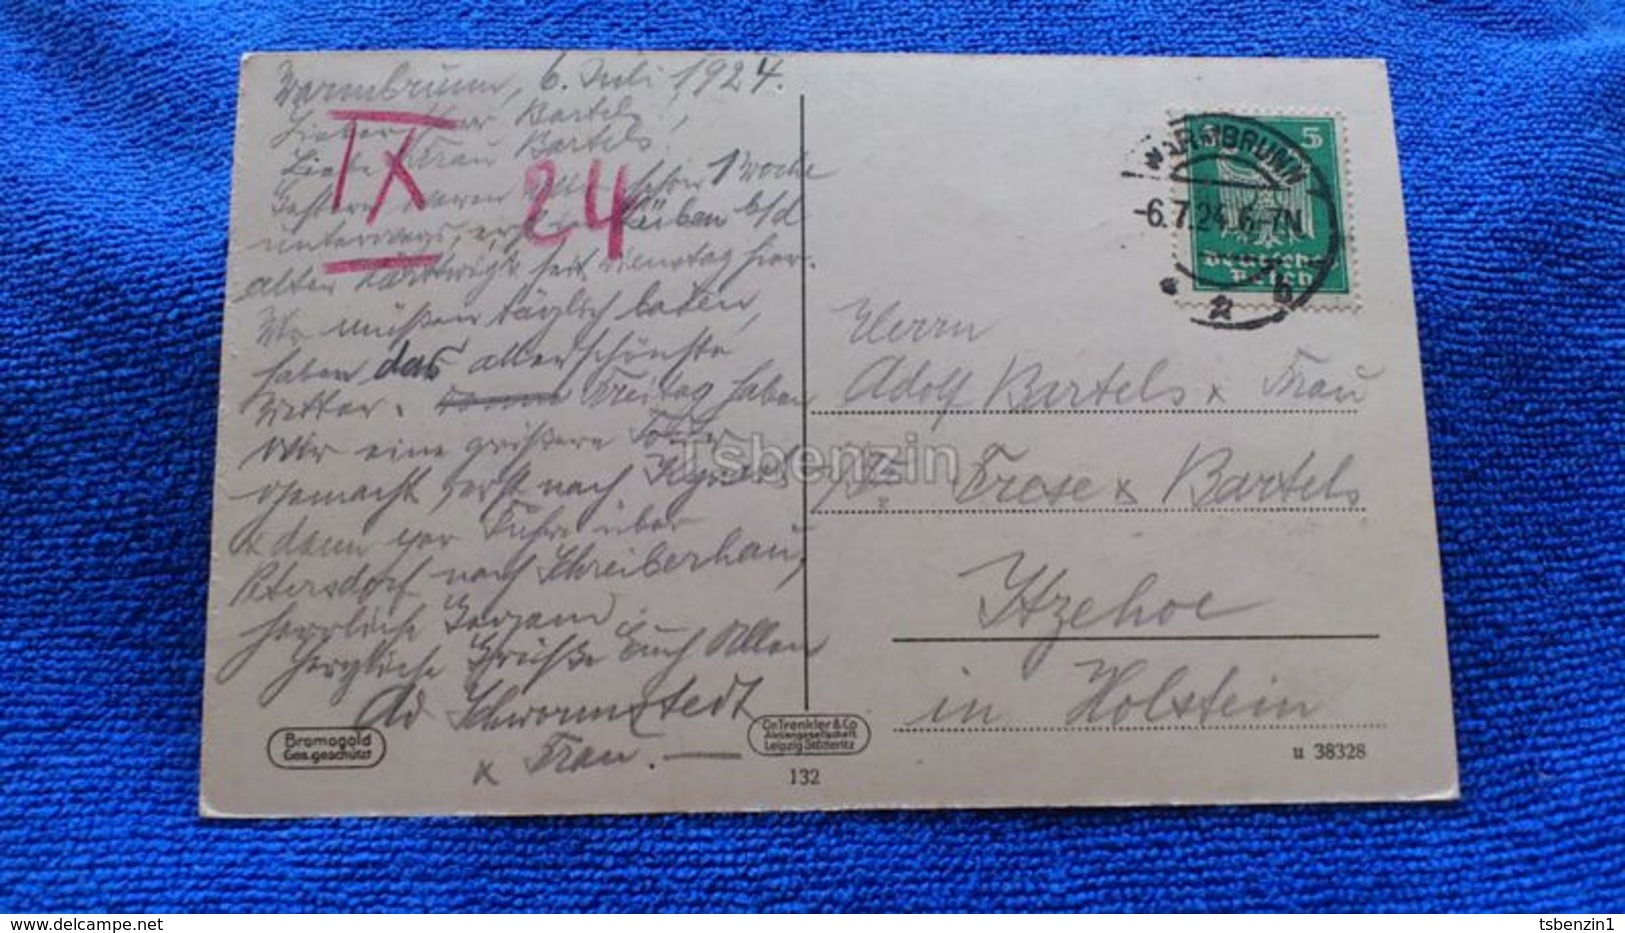 Warmbrunn, 6. Juli 1924.
Lieber Herr Bartels,
Liebe Frau Bartels!
Gestern waren schon 1 Woche
unterwegs, erst
alten seit Dienstag hier.
Wir müßen täglich baden,
haben das allerschönste
Wetter. Freitag haben
wir eine größere Tour
gemacht, erst nach
x dann per Fuhre über
Petersdorf nach Schreiberhau,
herrliche Gegend.
Herzliche Grüße Euch Allen
Ad Schwormstedt
x Frau. —
IX
24
WARMBRUNN
-6.7.24.6-7N
* 2 b
5
Deutsches
Reich
Herrn
Adolf Bartels x Frau
Frese x Bartels
Itzehoe
in Holstein
Bromogold
Ges. geschützt
Dr. Trenkler & Co
Aktiengesellschaft
Leipzig-Stötteritz
132
u 38328
Tsbenzin
delcampe.net
tsbenzin1